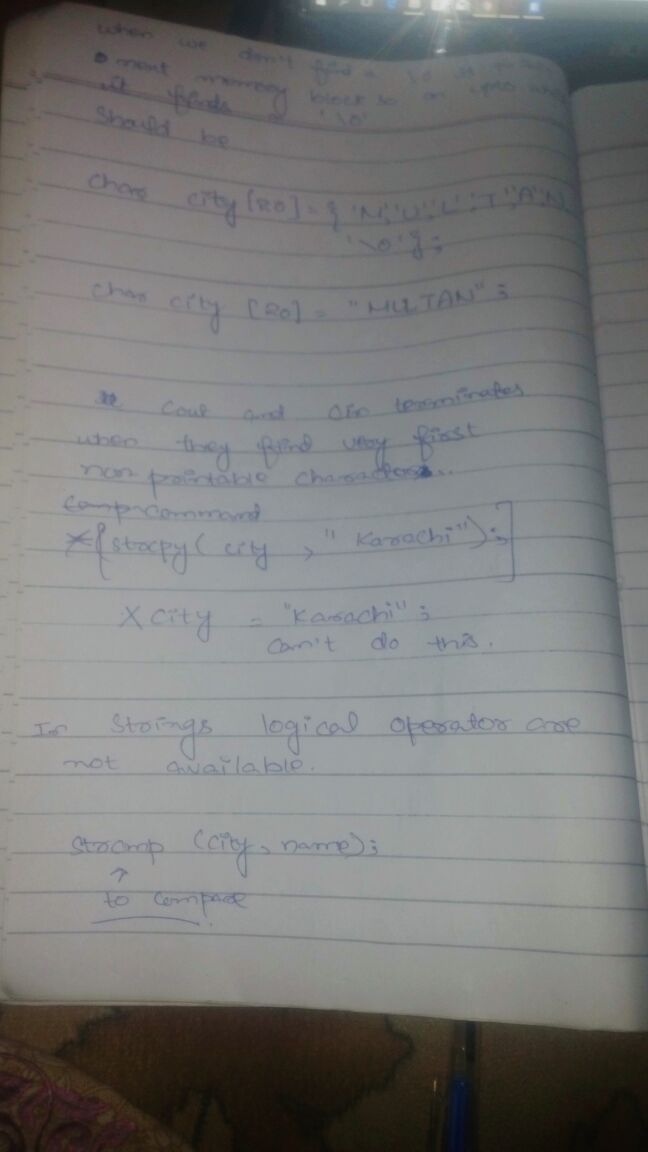 when we don't find a \0 it
next memory block so on upto
it finds a '\0'
Should be
char city [20] = { 'M','U','L','T','A','N'
'\0' };
char city [20] = "MULTAN";
cout and cin terminates
when they find very first
non printable characters...
command
*{strcpy( city , "Karachi");]
X city = "Karachi";
can't do this.
In Strings logical operator are
not available.
strcmp (city, name);
↑
to compare